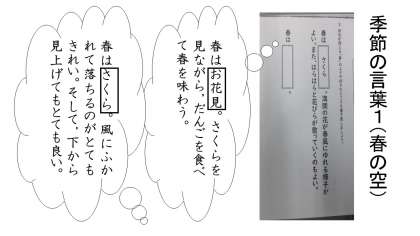 季節の言葉1（春の空）
春は　さくら　。満開の花が春風にゆれる様子が
よい。また、はらはらと花びらが散っていくのもよい。
春は　　　　。
春はお花見。さくらを
見ながら、だんごを食べ
て春を味わう。
春はさくら。風にふか
れて落ちるのがとても
きれい。そして、下から
見上げてもとても良い。